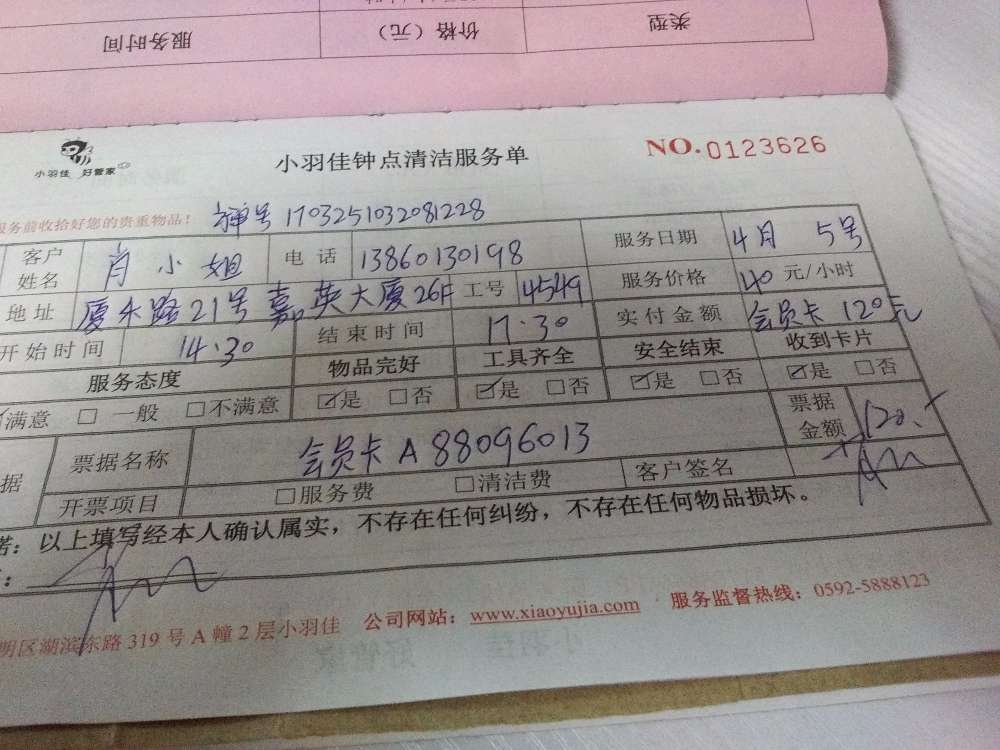 类型 价格（元） 服务时间
小羽佳 好管家
小羽佳钟点清洁服务单
NO.0123626
服务前收拾好您的贵重物品！ 单号 1703251032081228
客户姓名 肖小姐 电话 13860130198 服务日期 4月 5号
地址 厦禾路21号嘉英大厦26F 工号 4549 服务价格 40 元/小时
开始时间 14.30 结束时间 17.30 实付金额 会员卡 120元
服务态度 物品完好 工具齐全 安全结束 收到卡片
满意 □ 一般 □不满意 ☑是 □否 ☑是 □否 ☑是 □否 ☑是 □否
据 票据名称 会员卡 A 88096013 票据金额 120.-
开票项目 □服务费 □清洁费 客户签名
诺：以上填写经本人确认属实，不存在任何纠纷，不存在任何物品损坏。
明区湖滨东路 319 号 A 幢 2 层小羽佳 公司网站：www.xiaoyujia.com 服务监督热线：0592-5888123